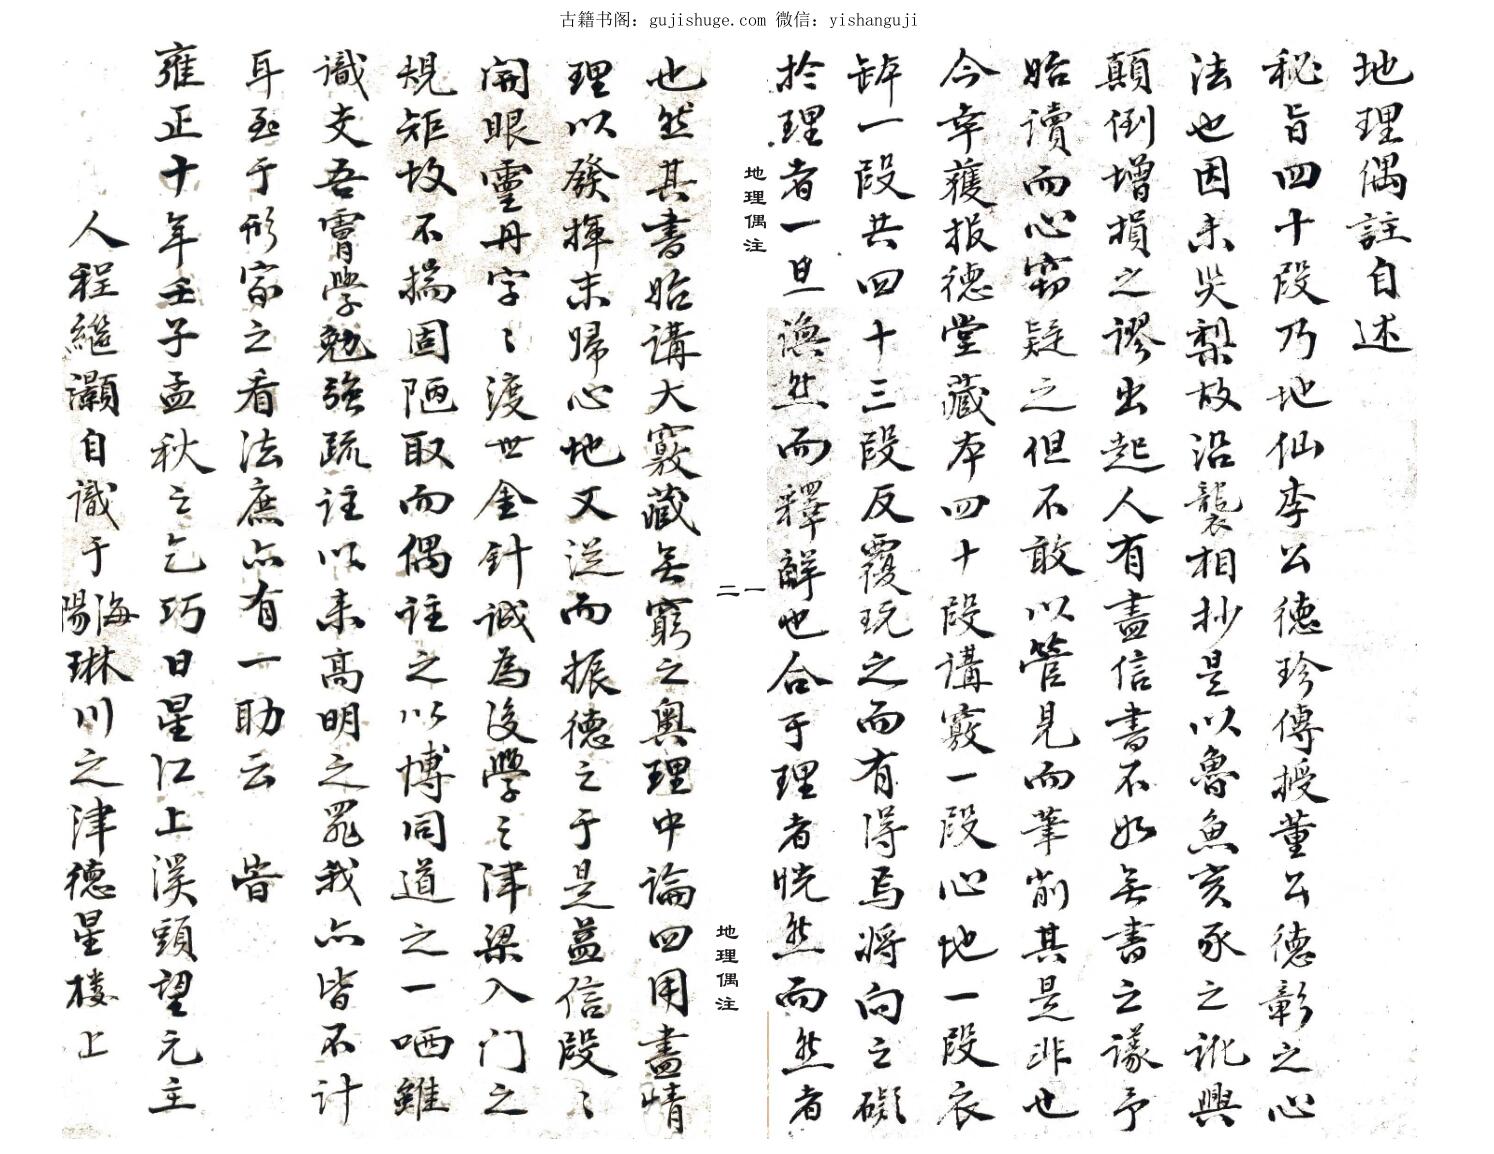 古籍书阁：gujishuge.com 微信：yishanguji
地理偶註自述
秘旨四十段乃地仙李公德珍傳授董公德彰之心
法也因未災梨故沿襲相抄是以魯魚亥豕之訛與
顛倒增損之謬出起人有盡信書不如無書之議予
始讀而心窃疑之但不敢以管見而筆削其是非也
今幸獲报德堂藏本四十段講竅一段心地一段衣
鉢一段共四十三段反覆玩之而有得焉將向之礙
扵理者一旦渙然而釋觧也合于理者恍然而然者
地理偶注
一
二
地理偶注
也然其書始講大竅藏無窮之奧理中論四用盡情
理以發揮末歸心地又従而振德之于是益信段〻
開眼靈丹字〻渡世金針誠為後學之津梁入门之
規矩故不揣固陋取而偶註之以博同道之一哂雖
識支吾膚學勉強疏註以来高明之罪我亦皆不計
耳至于形家之看法庶亦有一助云 旹
雍正十年壬子孟秋之乞巧日星江上溪頭望元主
人程繼灝自識于海陽琳川之津德星楼上